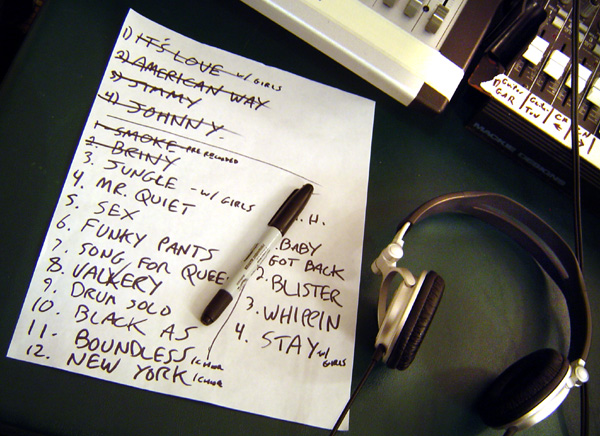 1) IT'S LOVE w/ GIRLS
2) AMERICAN WAY
3) JIMMY
4) JOHNNY
1. SMOKE PRE RECORDED
2. BRINY
3. JUNGLE - w/ GIRLS
4. MR. QUIET
5. SEX
6. FUNKY PANTS
7. SONG FOR QUEE
8. VALKERY
9. DRUM SOLO
10. BLACK AS
11. BOUNDLESS
12. NEW YORK
. H.
. BABY GOT BACK
2. BLISTER
3. WHIPPIN
4. STAY w/ GIRLS
GAR
MACKIE DESIGNS